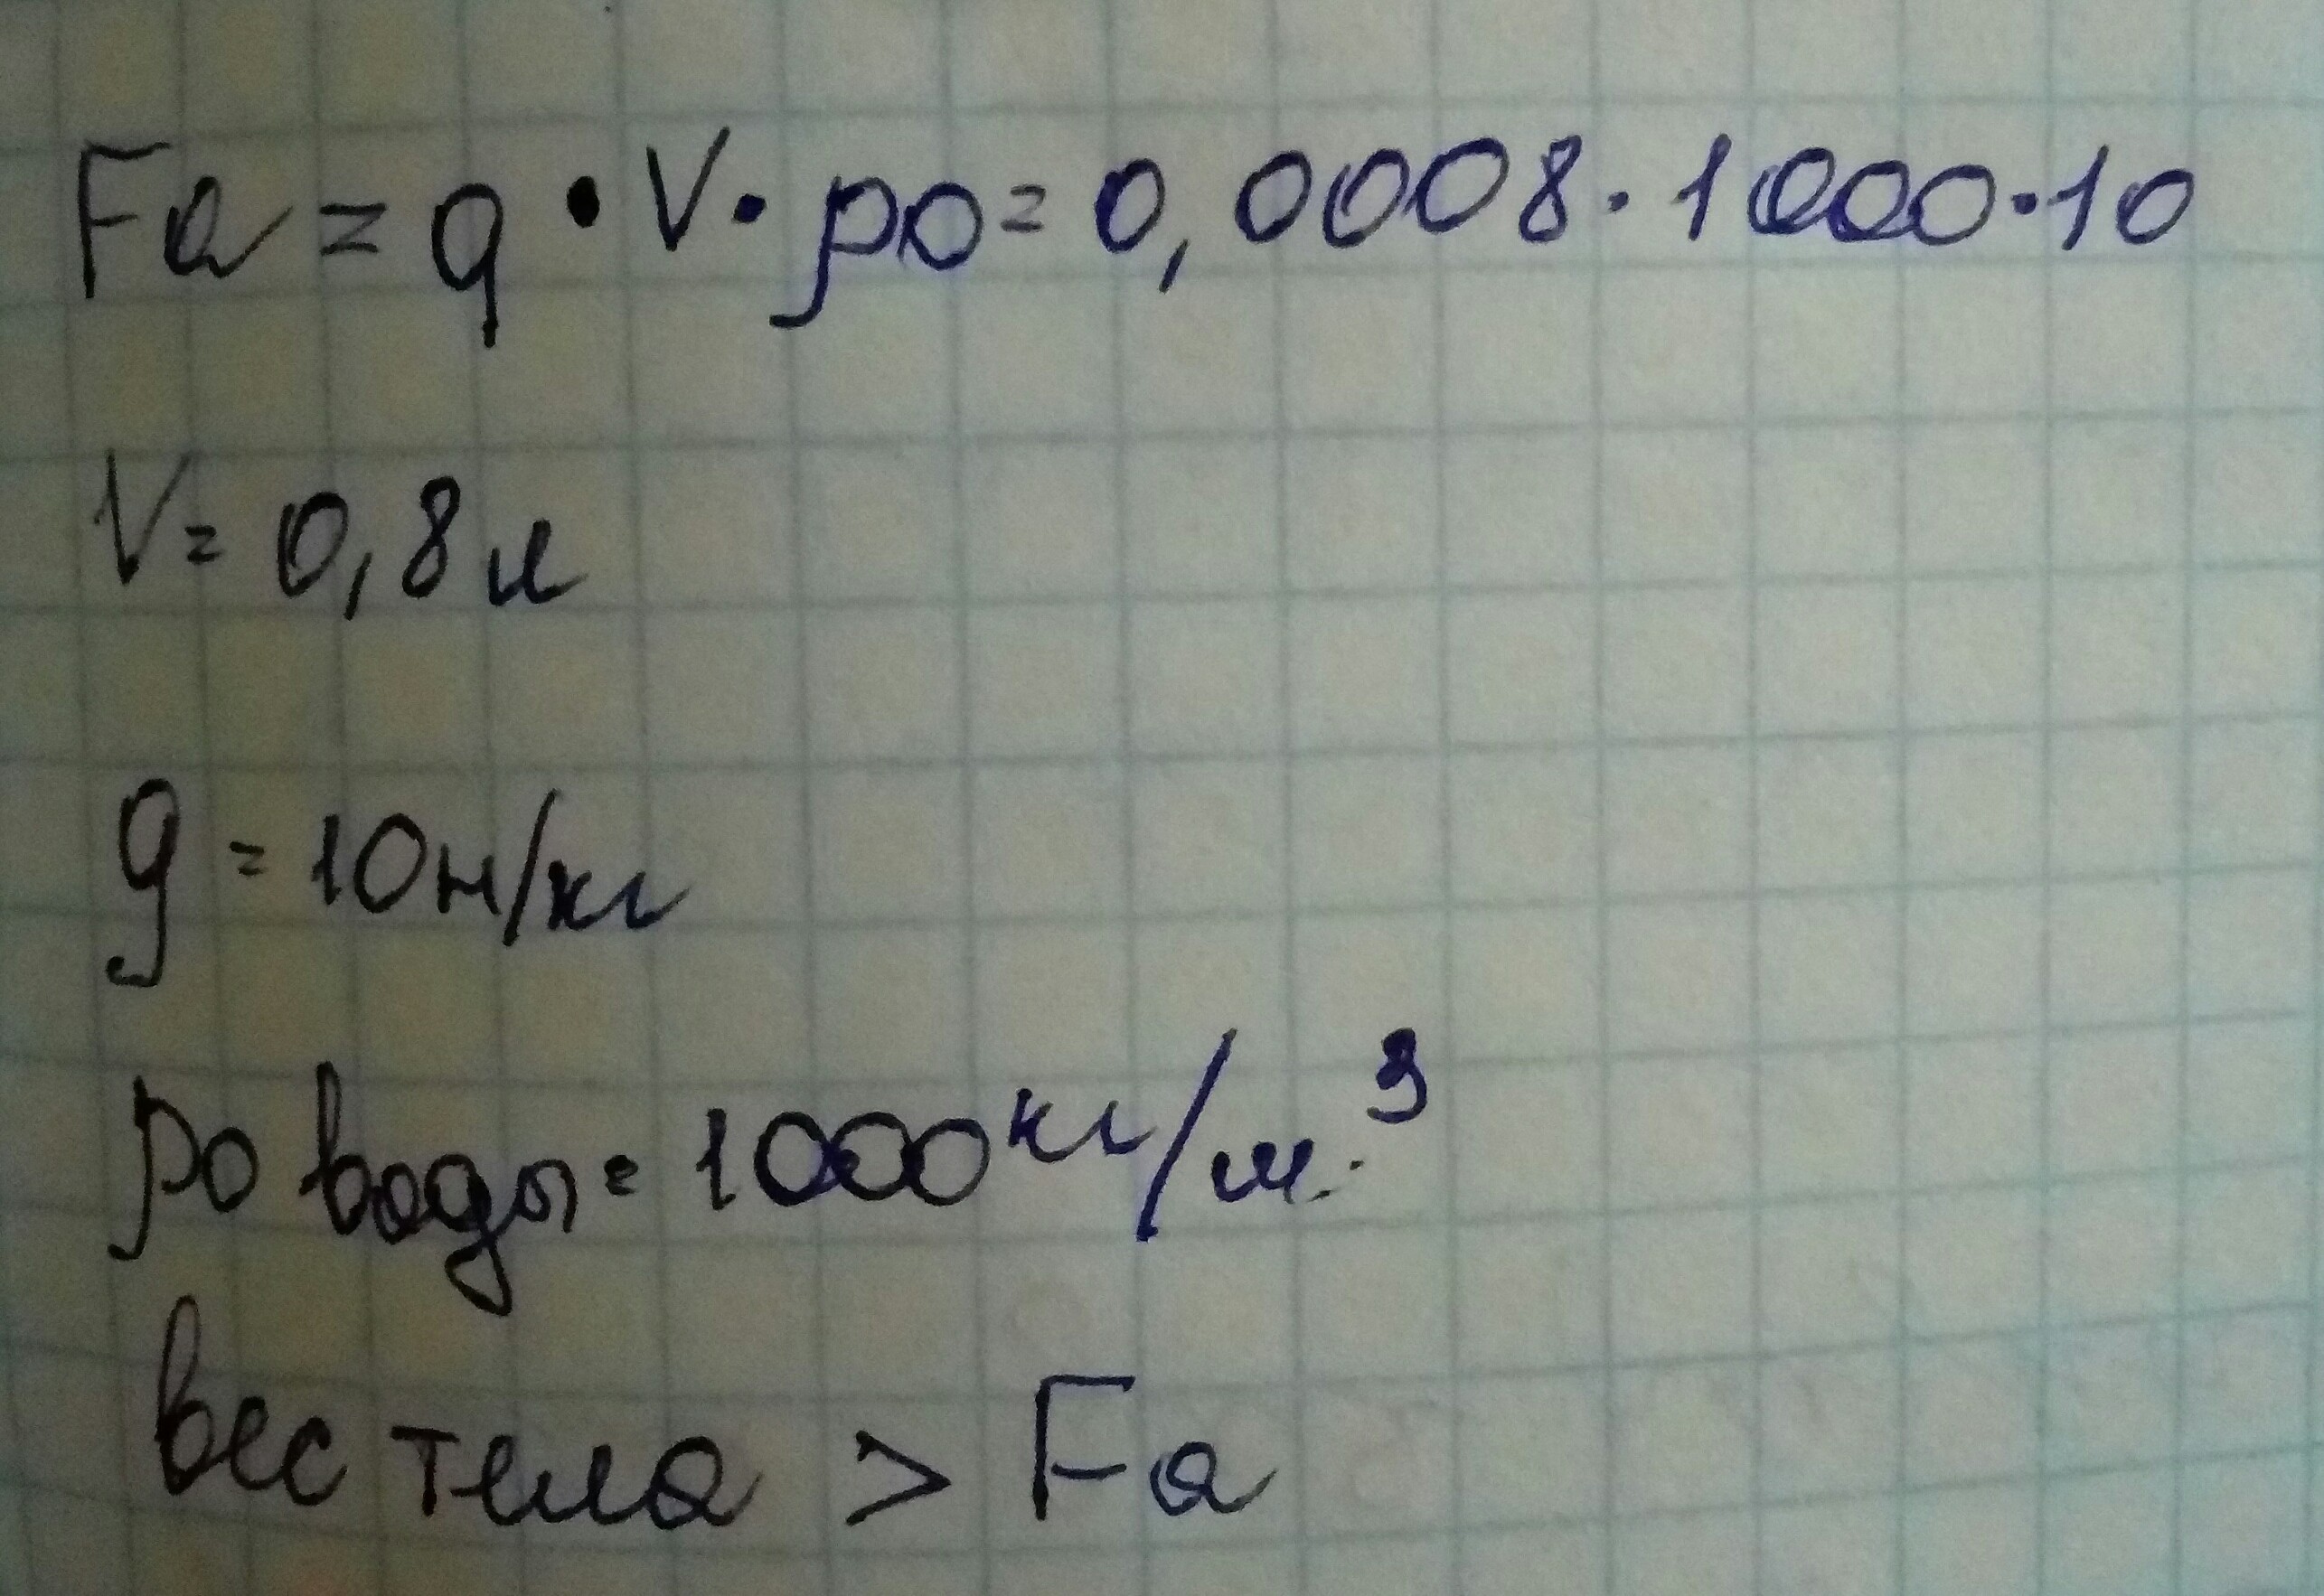 Fa = g • V • ро = 0,0008 • 1000 • 10
V = 0,8 л
g = 10 н/кг
ро воды = 1000 кг/м³
вес тела > Fa